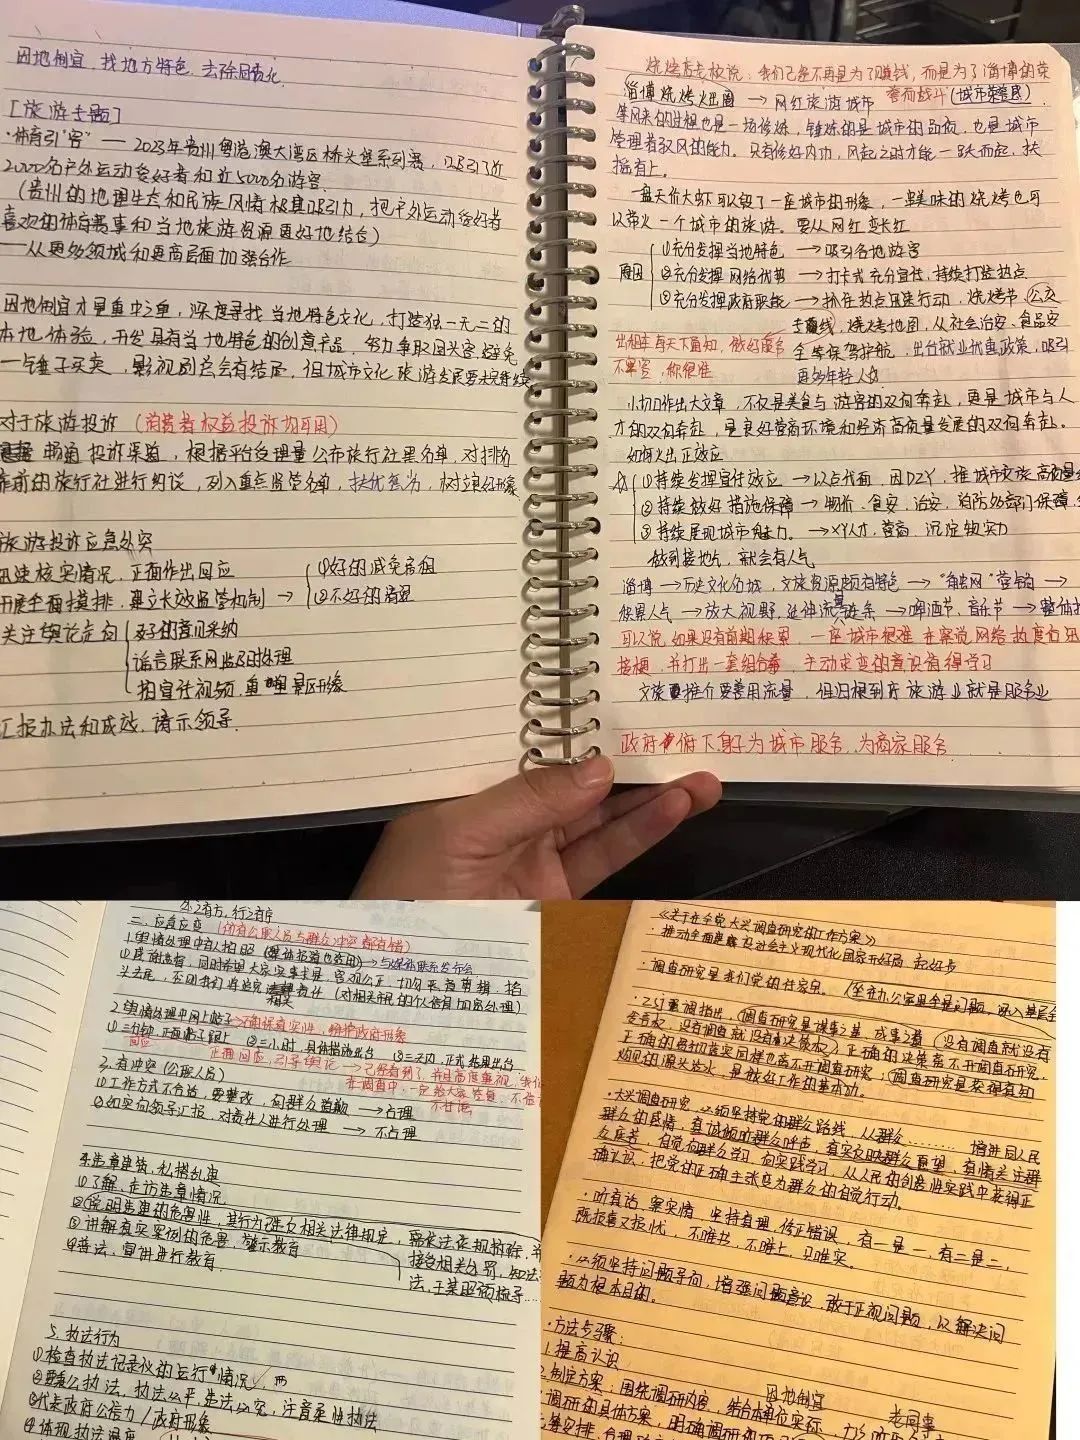 因地制宜，找地方特色，去除同质化.
[旅游专题]
·体育引"客" —— 2023年贵州粤港澳大湾区桥头堡系列赛，吸引了近
2000名户外运动爱好者和近5000名游客.
(贵州的地理生态和民族风情极其吸引力，把户外运动爱好者
喜欢的体育赛事和当地旅游资源更好地结合)
——从更多领域和更高层面加强合作
因地制宜才是重中之重，深度寻找当地特色文化，打造独一无二的
本地体验，开发具有当地特色的创意产品，努力争取回头客，避免
一锤子买卖，影视剧总会有结尾，但城市文化旅游发展要永完待续
对于旅游投诉 (消费者权益投诉均可因)
畅通投诉渠道，根据平台受理量公布旅行社黑名单，对排名
靠前的旅行社进行约谈，列入重点监管名单，扶优惩劣，树立良好形象
旅游投诉应急处突
迅速核实情况，正面作出回应
开展全面摸排，建立长效监管机制 → ①好的减免房租
②不好的清退
关注舆论走向 好的意见采纳
谣言联系网监及时处理
拍宣传视频，重 景区形象
汇报办法和成效，请示领导.
烧烤店老板说：我们已经不再是为了赚钱，而是为了淄博的荣
誉而战斗 (城市荣誉感)
淄博烧烤出圈 → 网红旅游城市
等风来的过程也是一场修炼，锤炼的是城市的品质，也是城市
管理者驭风的能力。只有修好内功，风起之时才能一跃而起，扶
摇直上。
一盘天价大虾可以毁了一座城市的形象，一串美味的烧烤也可
以带火一个城市的旅游。要从网红变长红
原因 ①充分发挥当地特色 → 吸引各地游客
②充分发挥网络优势 → 打卡式充分宣传，持续打造热点
③充分发挥政府职能 → 抓住热点迅速行动，烧烤节、公交
专线，烧烤地图，从社会治安、食品安
全等保驾护航，出台就业优惠政策，吸引
更多年轻人

出租车每天下通知，做好服务
不宰客，你很准
小切口作出大文章，不仅是美食与游客的双向奔赴，更是城市与人
才的双向奔赴，是良好营商环境和经济高质量发展的双向奔赴。
如何火出正效应
①持续发挥宣传效应 → 以点代面，因DZY，推城市文旅高质量
②持续做好措施保障 → 物价、食安、治安、消防多部门保障
③持续展现城市魅力 → XY人才，营商，沉淀软实力
做到接地气，就会有人气
淄博 → 历史文化名城，文旅资源颇有特色 → 营销 →
积累人气 → 放大视野，延伸流量链条 → 啤酒节、音乐节 →
可以说，如果没有前期积累，一座城市很难在察觉网络热度后迅
接梗，并打出一套组合拳，主动求变的意识值得学习
文旅推介要善用流量，但归根到底旅游业就是服务业
政府俯下身子为城市服务，为商家服务
处之有方，行之有序
二、应急应变 (仍有公职人员与群众冲突都有错)
1.舆情处理中有人拍照 (媒体报道也套用) → 与媒体联系发布会
①感谢监督，同时希望大家实事求是，客观公正，切勿恶意剪辑，掐
头去尾，否则我们将追究相关责任 (对相关市民的个人信息加密处理)
2.舆情处理中网上帖子 → 确保真实性，维护政府形象
①三分钟，正面帖子跟上 ②二小时，具体措施出台 ③三天内，正式结果出台
回应
正面回应，引导舆论 → 已经看到了，并且高度重视，我们
在调查中，一定给大家答复，不信谣
不传谣
3.有冲突 (公职人员)
①工作方式不合适，要整改，向群众道歉 → 占理
②如实向领导汇报，对责任人进行处理 → 不占理
4.违章建筑，私搭乱建
①了解、走访违章情况
②说明违建的危害性，其行为已经违反相关法律规定，需依法依规拆除，并
接受相关处罚，知法
③讲解真实案例的危害，警示教育
法，于某照顾梳子……
④普法，宣讲进行教育.
5.执法行为
①检查执法记录仪的运行情况
②秉公执法，执法公平，违法必究，注意柔性执法
③代表政府公信力／政府形象
④体现执法温度
《关于在全党大兴调查研究的工作方案》
·推动全面建设社会主义现代化国家开好局、起好步
·调查研究是我们党的传家宝。(坐在办公室里全是问题，深入基层全
·ZSJ重调指出，(调查研究是谋事之基、成事之道，(没有调查就没有
发言权，没有调查就没有决策权)；正确的决策离不开调查研究，
正确的贯彻落实同样也离不开调查研究；调查研究是获得真知
灼见的源头活水，是做好工作的基本功。
·大兴调查研究，必须坚持党的群众路线，从群众……… 增进同人民
群众的感情，真诚倾听群众呼声，真实反映群众愿望、真情关注群
众疾苦，自觉向群众学习、向实践学习，从人民的创造性实践中获得正
确认识，把党的正确主张变为群众的自觉行动。
·听真话、察实情，坚持真理、修正错误，有一是一、有二是二，
既报喜又报忧，不唯书、不唯上、只唯实。
·必须坚持问题导向，增强问题意识，敢于正视问题，以解决问
题为根本目的。
·方法步骤：
1.提高认识
因地制宜
2.制定方案：围绕调研内容，结合本单位实际，
老同事
调研的具体方案，明确调研的项